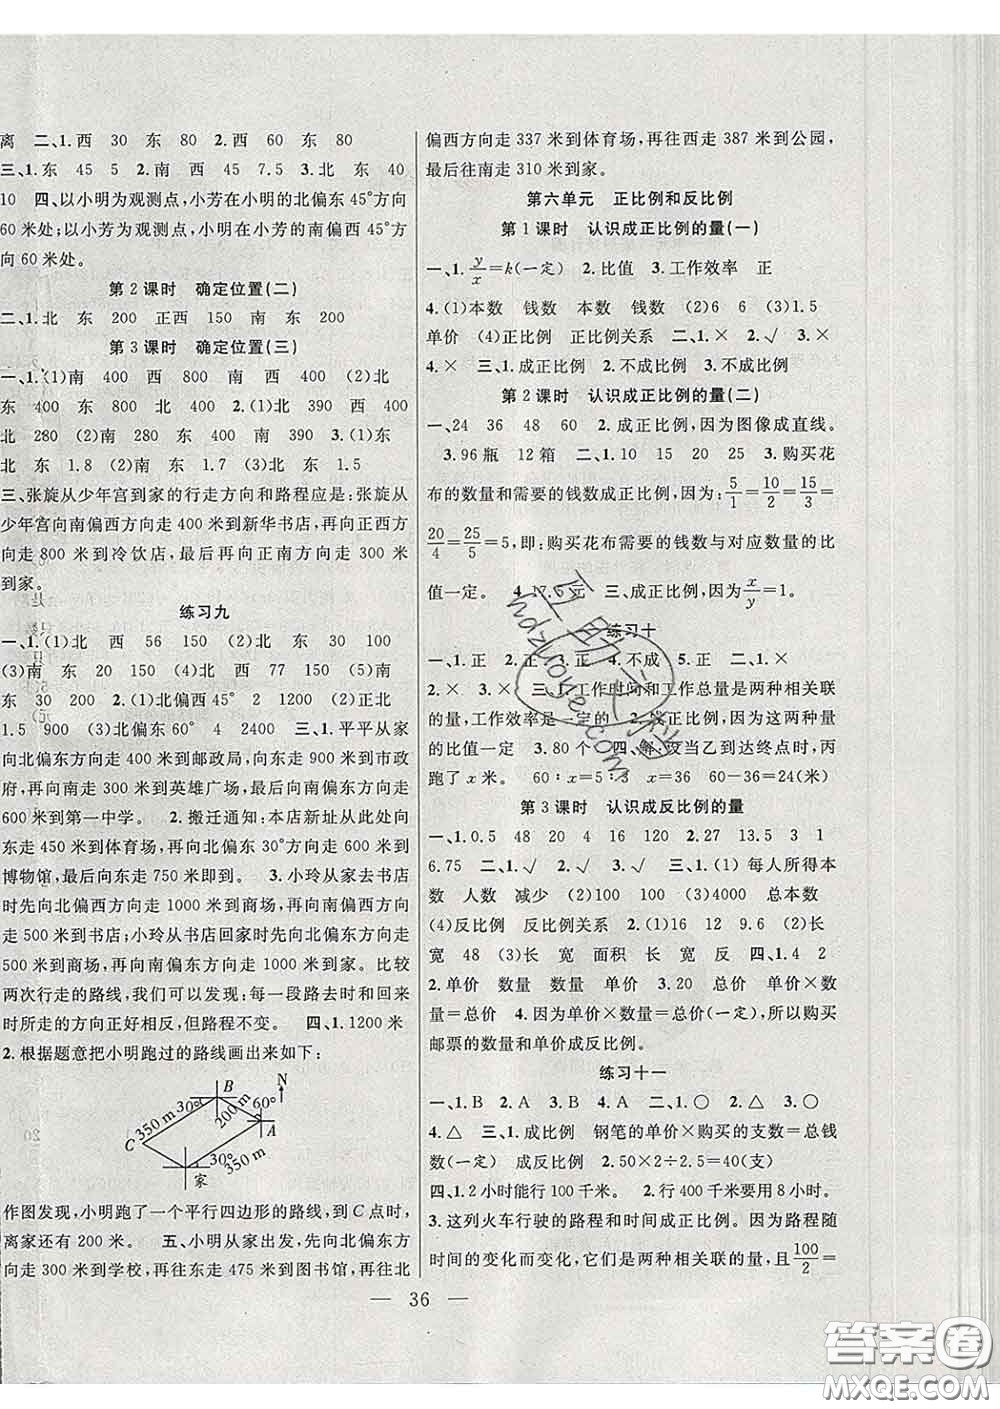 离　二、1.西　30　东　80　2.西　60　东　80
三、1.东　45　5　2.南　西　45　7.5　3.北　东　40
10　四、以小明为观测点,小芳在小明的北偏东45°方向
60米处;以小芳为观测点,小明在小芳的南偏西45°方
向60米处。
第2课时　确定位置(二)
二、1.北　东　200　正西　150　南　东　200
第3课时　确定位置(三)
一、1.(1)南　400　西　800　南　西　400　(2)北
东　400　东　800　北　400　2.(1)北　390　西　400
北　280　(2)南　280　东　400　南　390　3.(1)东
北　东　1.8　(2)南　东　1.7　(3)北　东　1.5
三、张旋从少年宫到家的行走方向和路程应是:张旋从
少年宫向南偏西方向走400米到新华书店,再向正西方
向走800米到冷饮店,最后再向正南方向走400米
到家。
练习九
一、1.(1)北　西　56　150　(2)北　东　30　100
(3)南　东　20　150　(4)北　西　77　150　(5)南
东　30　200　2.(1)北偏西45°　2　1200　(2)正北
1.5　900　(3)北偏东60°　4　2400　三、1.平平从家
向北偏东方向走400米到邮政局,向东走300米到市政
府,再向南走300米到英雄广场,最后向南偏东方向走
600米到第一中学。　2.搬迁通知:本店新址从此处向
东走450米到体育场,再向北偏东30°方向走600米到
博物馆,最后向东走750米即到。　3.小玲从家去书店
时先向北偏西方向走1000米到商场,再向南偏西方向
走500米到书店;小玲从书店回家时先向北偏东方向走
500米到商场,再向南偏东方向走1000米到家。比较
两次行走的路线,我们可以发现:每一段路去时和回来
时所走的方向正好相反,但路程不变。　四、1.1200米
2.根据题意把小明跑过的路线画出来如下:
B　N
30°　60°
350 m　200 m　A
C
30°
350 m
家
作图发现,小明跑了一个平行四边形的路线,到C点时,
离家还有200米。　五、小明从家出发,先向北偏东方
向走300米到学校,再往东走475米到图书馆,再往北
偏西方向走337米到体育场,再往西走387米到公园,
最后往南走310米到家。
第六单元　正比例和反比例
第1课时　认识成正比例的量(一)
一、1.y/x=k(一定)　2.比值　3.工作效率　正
4.(1)本数　钱数　本数　钱数　(2)6　6　(3)1.5
单价　(4)正比例　正比例关系　二、1.×　2.√　3.×
4.×　三、1.成正比例　2.不成比例　3.不成正比例
第2课时　认识成正比例的量(二)
一、24　36　48　60　2.成正比例,因为图像成直线。
3.96瓶　12箱　二、1.10　15　20　25　3.购买花
布的数量和需要的钱数成正比例,因为:5/1=10/2=15/3=
20/4=25/5=5,即:购买花布需要的钱数与对应数量的比
值一定。　4.17.5元　三、成正比例,因为x/y=1。
练习十
一、1.正　2.正　3.正　4.不成　5.正　二、1.√
2.×　3.×　三、1.工作时间和工作总量是两种相关联
的量,工作效率是一定的　2.成正比例,因为这两种量
的比值一定　3.80个　四、解:设当乙到达终点时,丙
跑了x米。　60:x=5:3　x=36　60-36=24(米)
第3课时　认识成反比例的量
一、1.0.5　48　20　4　16　120　2.27　13.5　3　1
6.75　二、1.√　2.√　3.√　三、1.(1)每人所得本
数　人数　减少　(2)100　100　(3)4000　总本数
(4)反比例　反比例关系　2.(1)16　12　9.6　(2)长
宽　48　(3)长　宽　面积　长　宽　反　四、1.4　2
2.单价　数量　数量　单价　3.20　总价　单价×数量
=总价　4.因为单价×数量=总价(一定),所以购买
邮票的数量和单价成反比例。
练习十一
一、1.B　2.A　3.A　4.A　二、1.○　2.△　3.○
4.△　三、1.成比例　钢笔的单价×购买的支数=总钱
数(一定)　成反比例　2.50×2÷2.5=40(支)
四、1.2小时能行100千米。　2.行400千米要用8小时。
3.这列火车行驶的路程和时间成正比例。因为路程随
时间的变化而变化,它们是两种相关联的量,且100/2=
— 36 —
答案圈
MXQE.COM